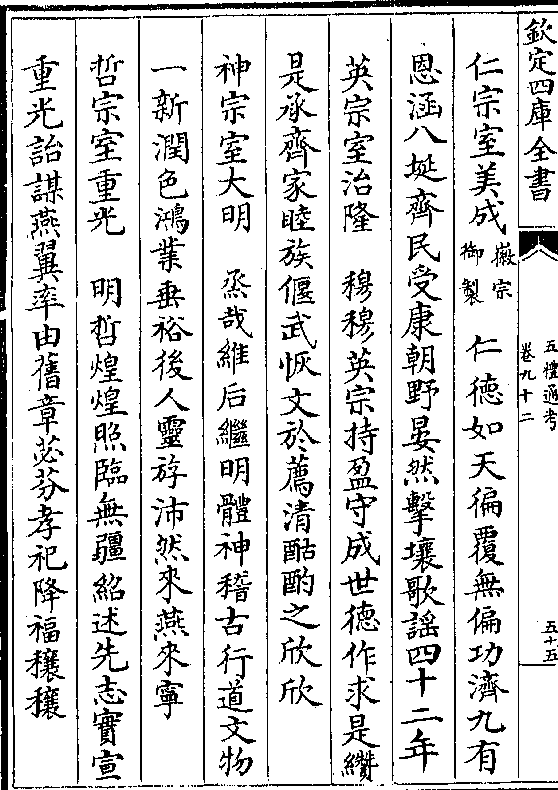 欽定四庫全書
五禮通考
卷九十二
五十五
仁宗室美成 徽宗
御製 仁德如天徧覆無偏功濟九有
恩涵八埏齊民受康朝野晏然擊壤歌謡四十二年
英宗室治隆 穆穆英宗持盈守成世德作求是纘
是承齊家睦族偃武恢文於薦清酤酌之欣欣
神宗室大明 烝哉維后繼明體神稽古行道文物
一新潤色鴻業垂裕後人靈斿沛然來燕來寧
哲宗室重光 明哲煌煌照臨無疆紹述先志實宣
重光詒謀燕翼率由舊章苾芬孝祀降福穰穰